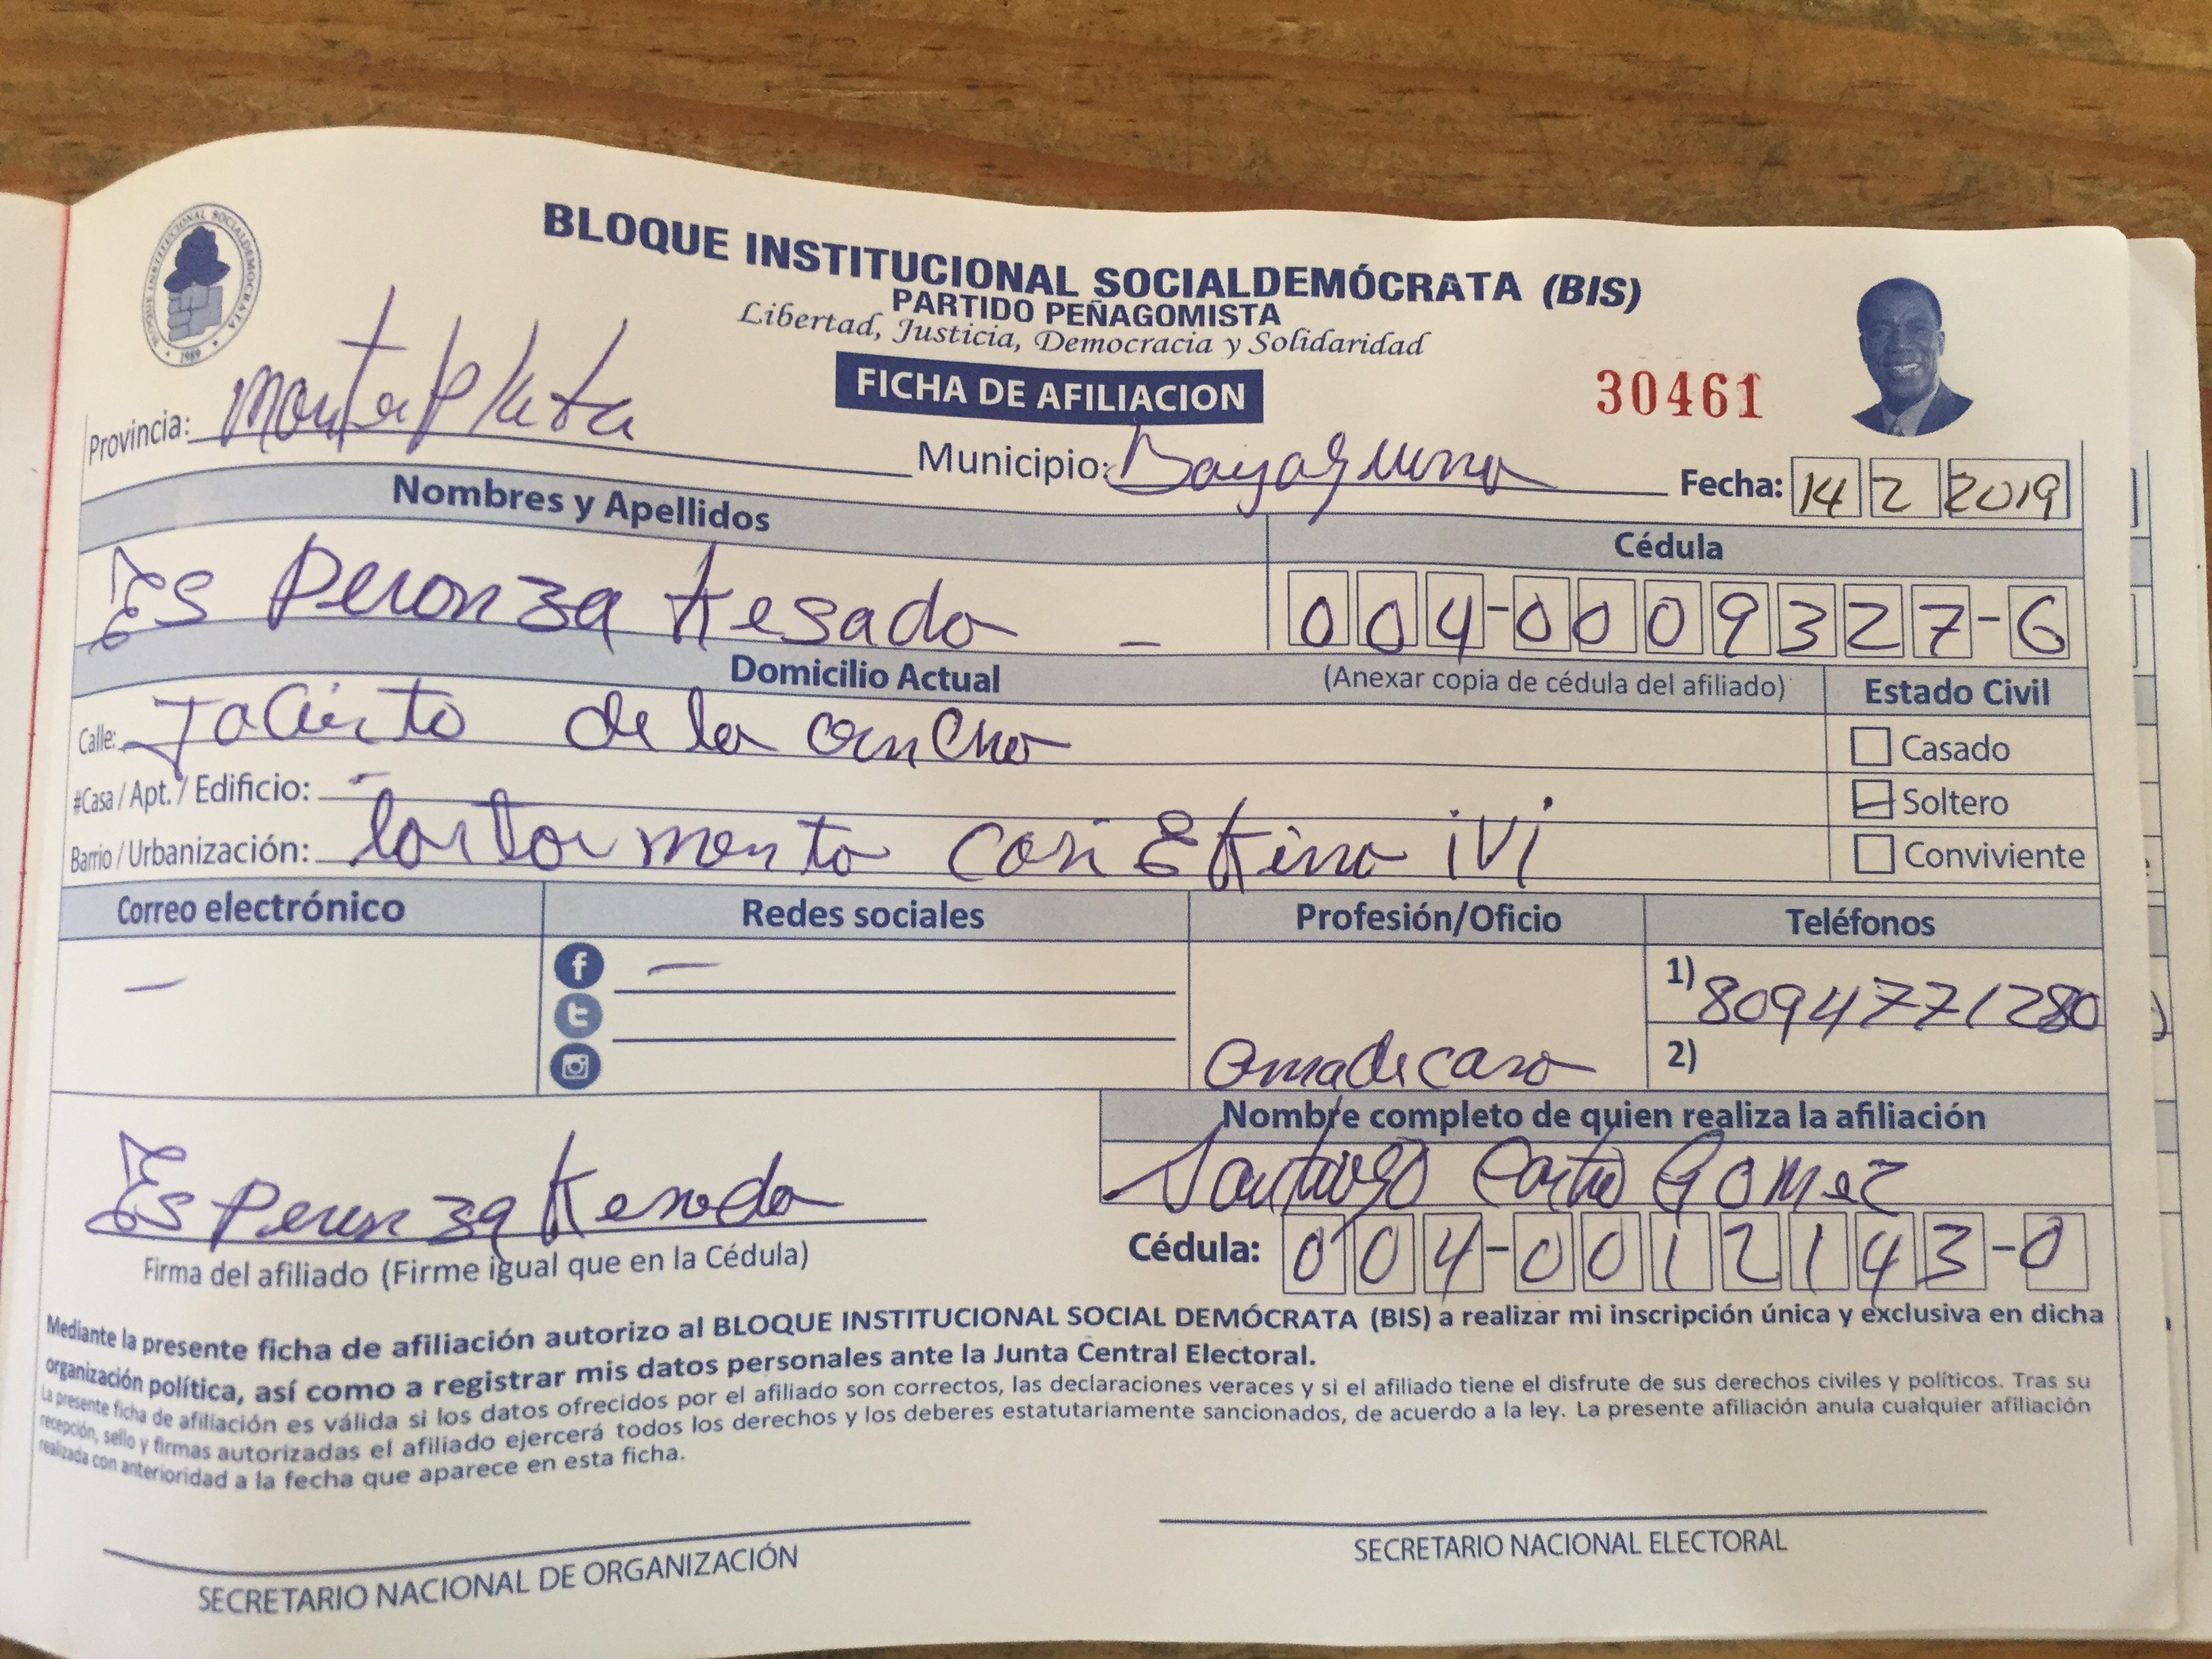 BLOQUE INSTITUCIONAL SOCIALDEMOCRATA
1989
BLOQUE INSTITUCIONAL SOCIALDEMÓCRATA (BIS)
PARTIDO PEÑAGOMISTA
Libertad, Justicia, Democracia y Solidaridad
FICHA DE AFILIACION
30461
Provincia: Monte Plata Municipio: Bayaguana Fecha: 14 2 2019
Nombres y Apellidos
Cédula
Esperonza Kesada - 004-0009327-6
Domicilio Actual (Anexar copia de cédula del afiliado) Estado Civil
Calle: Jacinto de la concha
Casado
#Casa / Apt. / Edificio: -
Soltero
Barrio / Urbanización:
Conviviente
Correo electrónico Redes sociales Profesión/Oficio Teléfonos
- f - 1) 8094771280
t
2)
Amadecasa
Nombre completo de quien realiza la afiliación
Santiago Gomez
Esperenza Kesada
Firma del afiliado (Firme igual que en la Cédula)
Cédula: 004-0012143-0
Mediante la presente ficha de afiliación autorizo al BLOQUE INSTITUCIONAL SOCIAL DEMÓCRATA (BIS) a realizar mi inscripción única y exclusiva en dicha
organización política, así como a registrar mis datos personales ante la Junta Central Electoral.
La presente ficha de afiliación es válida si los datos ofrecidos por el afiliado son correctos, las declaraciones veraces y si el afiliado tiene el disfrute de sus derechos civiles y políticos. Tras su
recepción, sello y firmas autorizadas el afiliado ejercerá todos los derechos y los deberes estatutariamente sancionados, de acuerdo a la ley. La presente afiliación anula cualquier afiliación
realizada con anterioridad a la fecha que aparece en esta ficha.
SECRETARIO NACIONAL DE ORGANIZACIÓN
SECRETARIO NACIONAL ELECTORAL